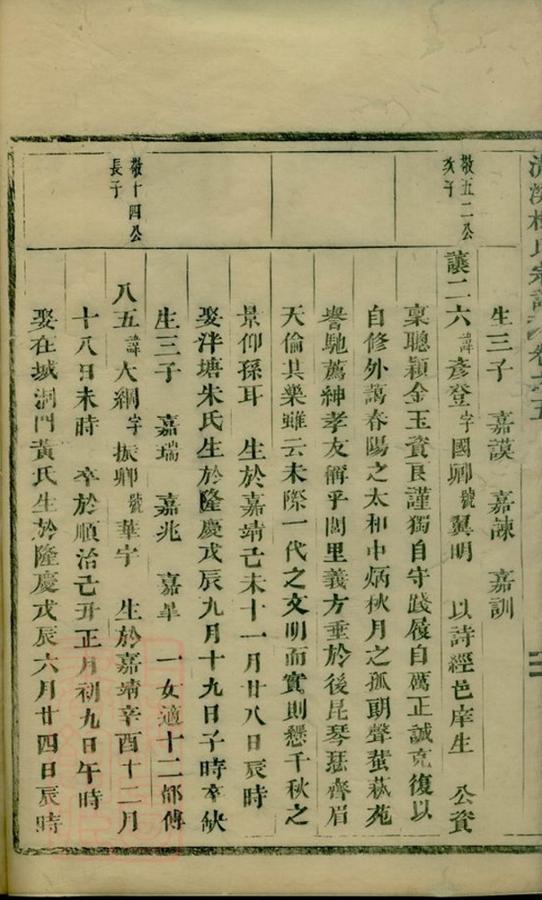 生三子 嘉謨 嘉諫 嘉訓
敬五二公
亥子
讓二六諱彥登字國卿號翼明 以詩經邑庠生 公資
稟聰穎金玉資良謹獨自守踐履自礪正誠克復以
自修外藹春陽之太和中炳秋月之孤朗聲蜚
譽馳薦紳孝友稱乎閭里義方垂於後昆琴瑟齊眉
天倫其樂雖云未際一代之文明而實則懸千秋之
景仰孫耳 生於嘉靖己未十一月廿八日辰時
娶泮塘朱氏生於隆慶戊辰九月十九日子時卒缺
生三子 嘉瑞 嘉兆 嘉 一女適十二都傅
敬十四公
長子
八五諱大綱字振卿號華宇 生於嘉靖辛酉十二月
十八日未時 卒於順治己丑正月初九日午時
娶在城洞門黃氏生於隆慶戊辰六月廿四日辰時